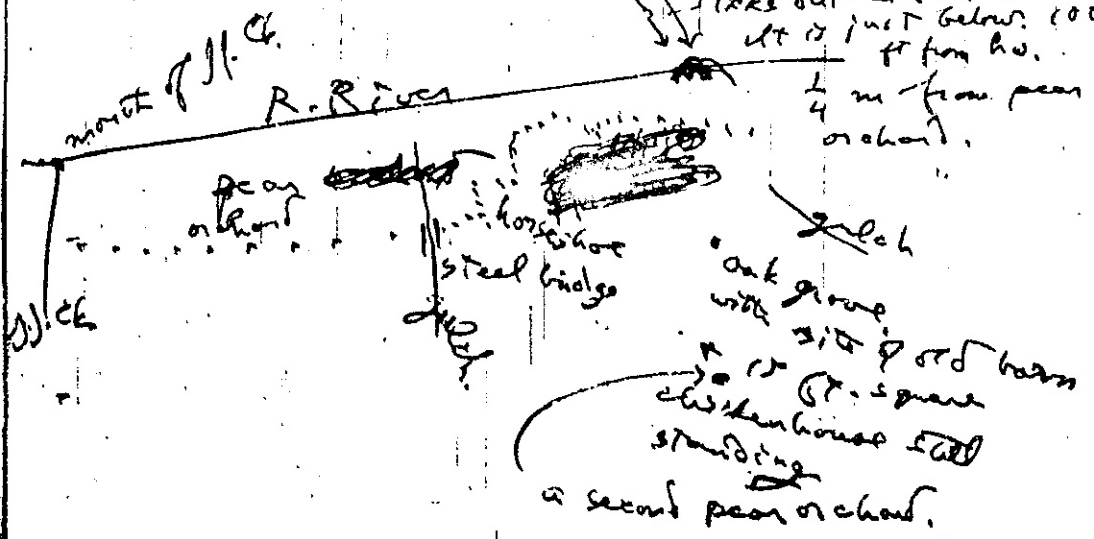 out
It is just below. 100
ft from hw.
1/4 m from pear
orchard.
mouth of J. Ck.
R. River
pear
orchard
horseshoe
steel bridge
gulch
J. Ck.
gulch.
oak grove
with site of old barn
15 ft. square
chickenhouse still
standing
a second pear orchard.